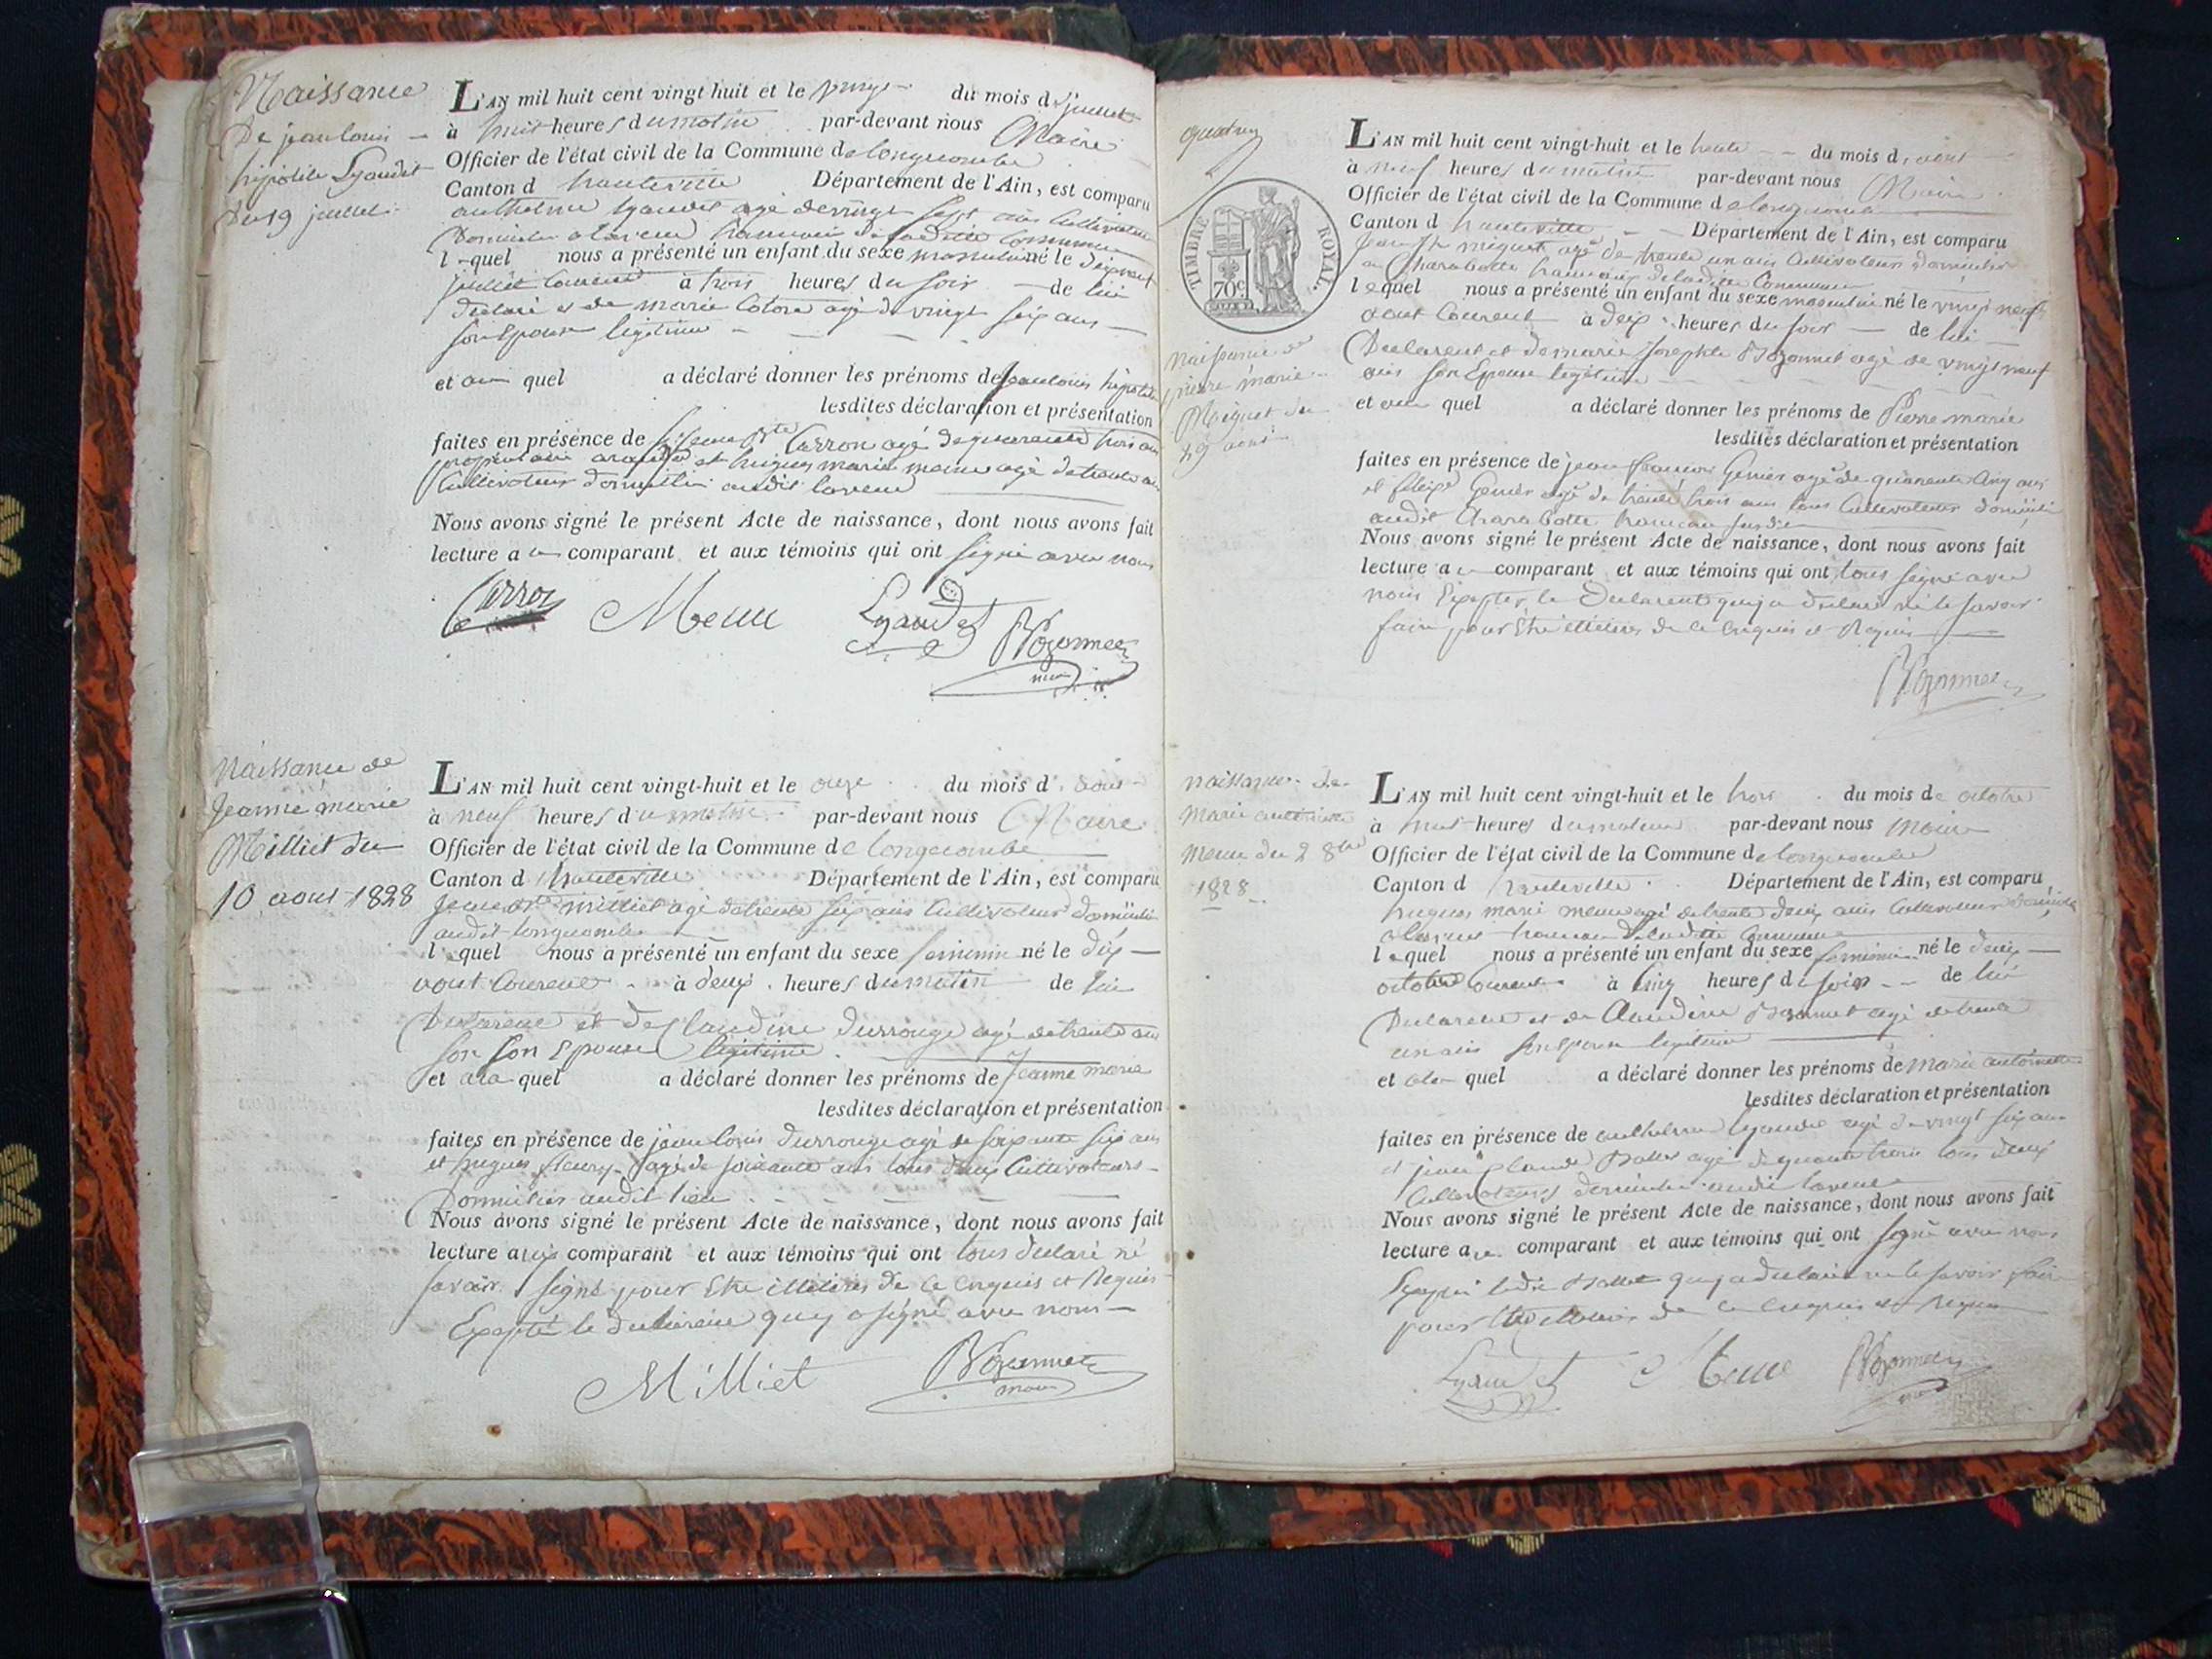 Naissance
De jean louis
hipolite Lyaudet
Du 19 juillet
L'AN mil huit cent vingt huit et le vingt du mois d juillet
à huit heures du matin par-devant nous Maire
Officier de l'état civil de la Commune de longecombe
Canton d hauteville Département de l'Ain, est comparu
anthelme lyaudet agé de vingt sept ans Cultivateur
Domicilié a lavend hameau de ladite Commune
l quel nous a présenté un enfant du sexe masculin né le dixneuf
juillet Courent à trois heures du soir de lui
Declaré et de marie agé de vingt six ans
son Epouse legitime
et au quel a déclaré donner les prénoms de jean louis hipolite
lesdites déclaration et présentation
faites en présence de Carron agé de quarente trois ans
propriétaire et hugues marie meune agé de trente ans
Cultivateur domicilié audit lavend
Nous avons signé le présent Acte de naissance, dont nous avons fait
lecture a comparant et aux témoins qui ont signé avec nous
Carron Meune Lyaudet Bozonnet
maire
Naissance de
Jeanne marie
Milliet du
10 aout 1828
L'AN mil huit cent vingt-huit et le onze du mois d'aout
à neuf heures du matin par-devant nous Maire
Officier de l'état civil de la Commune de longecombe
Canton d hauteville Département de l'Ain, est comparu
Jean Bte milliet agé de trente six ans Cultivateur domicilié
audit longecombe
l quel nous a présenté un enfant du sexe feminin né le dix
aout Courent à deux heures du matin de lui
Declarent et de Claudine durrouge agé de trente ans
son son Epouse legitime
et a la quel a déclaré donner les prénoms de Jeanne marie
lesdites déclaration et présentation
faites en présence de jean louis durrouge agé de soixante six ans
et hugues fleury agé de soixante ans tous deux Cultivateurs
Domicilies audit lieu
Nous avons signé le présent Acte de naissance, dont nous avons fait
lecture aux comparant et aux témoins qui ont tous declaré ne
savoir signé pour Etre illetires de ce enquis et Requis
Exepté le declarent quy a signé avec nous
Milliet Bozonnet
maire
TIMBRE ROYAL
70c
Naissance de
pierre marie
Miguet du
29 aout
L'AN mil huit cent vingt-huit et le trente du mois d'aout
à neuf heures du matin par-devant nous Maire
Officier de l'état civil de la Commune de longecombe
Canton d hauteville Département de l'Ain, est comparu
Jean miguet agé de trente un ans Cultivateur domicilié
a Charabotte hameau de ladite Commune
lequel nous a présenté un enfant du sexe masculin né le vingt neuf
aout Courent à deix heures du soir de lui
Declarent et de marie Josephte Bozonnet agé de vingt neuf
ans son Epouse legitime
et au quel a déclaré donner les prénoms de Pierre marie
lesdites déclaration et présentation
faites en présence de jean francois Genier agé de quarente Cinq ans
et felix Genier agé de trente trois ans tous Cultivateurs domicilié
audit Charabotte hameau susdit
Nous avons signé le présent Acte de naissance, dont nous avons fait
lecture a comparant et aux témoins qui ont tous signé avec
nous Exepter le Declarent quy a declaré ne le savoir
faire pour Etre illetires de ce enquis et Requis
Bozonnet
naissance de
Marie antoinette
Meune du 2 8bre
1828
L'AN mil huit cent vingt-huit et le trois du mois de octobre
à huit heures du matin par-devant nous Maire
Officier de l'état civil de la Commune de longecombe
Canton d hauteville Département de l'Ain, est comparu
hugues marie meune agé de trente deux ans Cultivateur domicilié
a lavend hameau de ladite Commune
lequel nous a présenté un enfant du sexe feminin né le deux
octobre Courent à Cinq heures du soir de lui
Declarent et de Claudine Bozonnet agé de trente
un ans son Epouse legitime
et a la quel a déclaré donner les prénoms de Marie antoinette
lesdites déclaration et présentation
faites en présence de anthelme lyaudet agé de vingt six ans
et jean Claude agé de quarante trois tous deux
Cultivateurs domicilies audit lavend
Nous avons signé le présent Acte de naissance, dont nous avons fait
lecture a comparant et aux témoins qui ont signé avec nous
Exepté ledit quy a declaré ne le savoir faire
pour Etre illetires de ce enquis et Requis
Lyaudet Meune Bozonnet